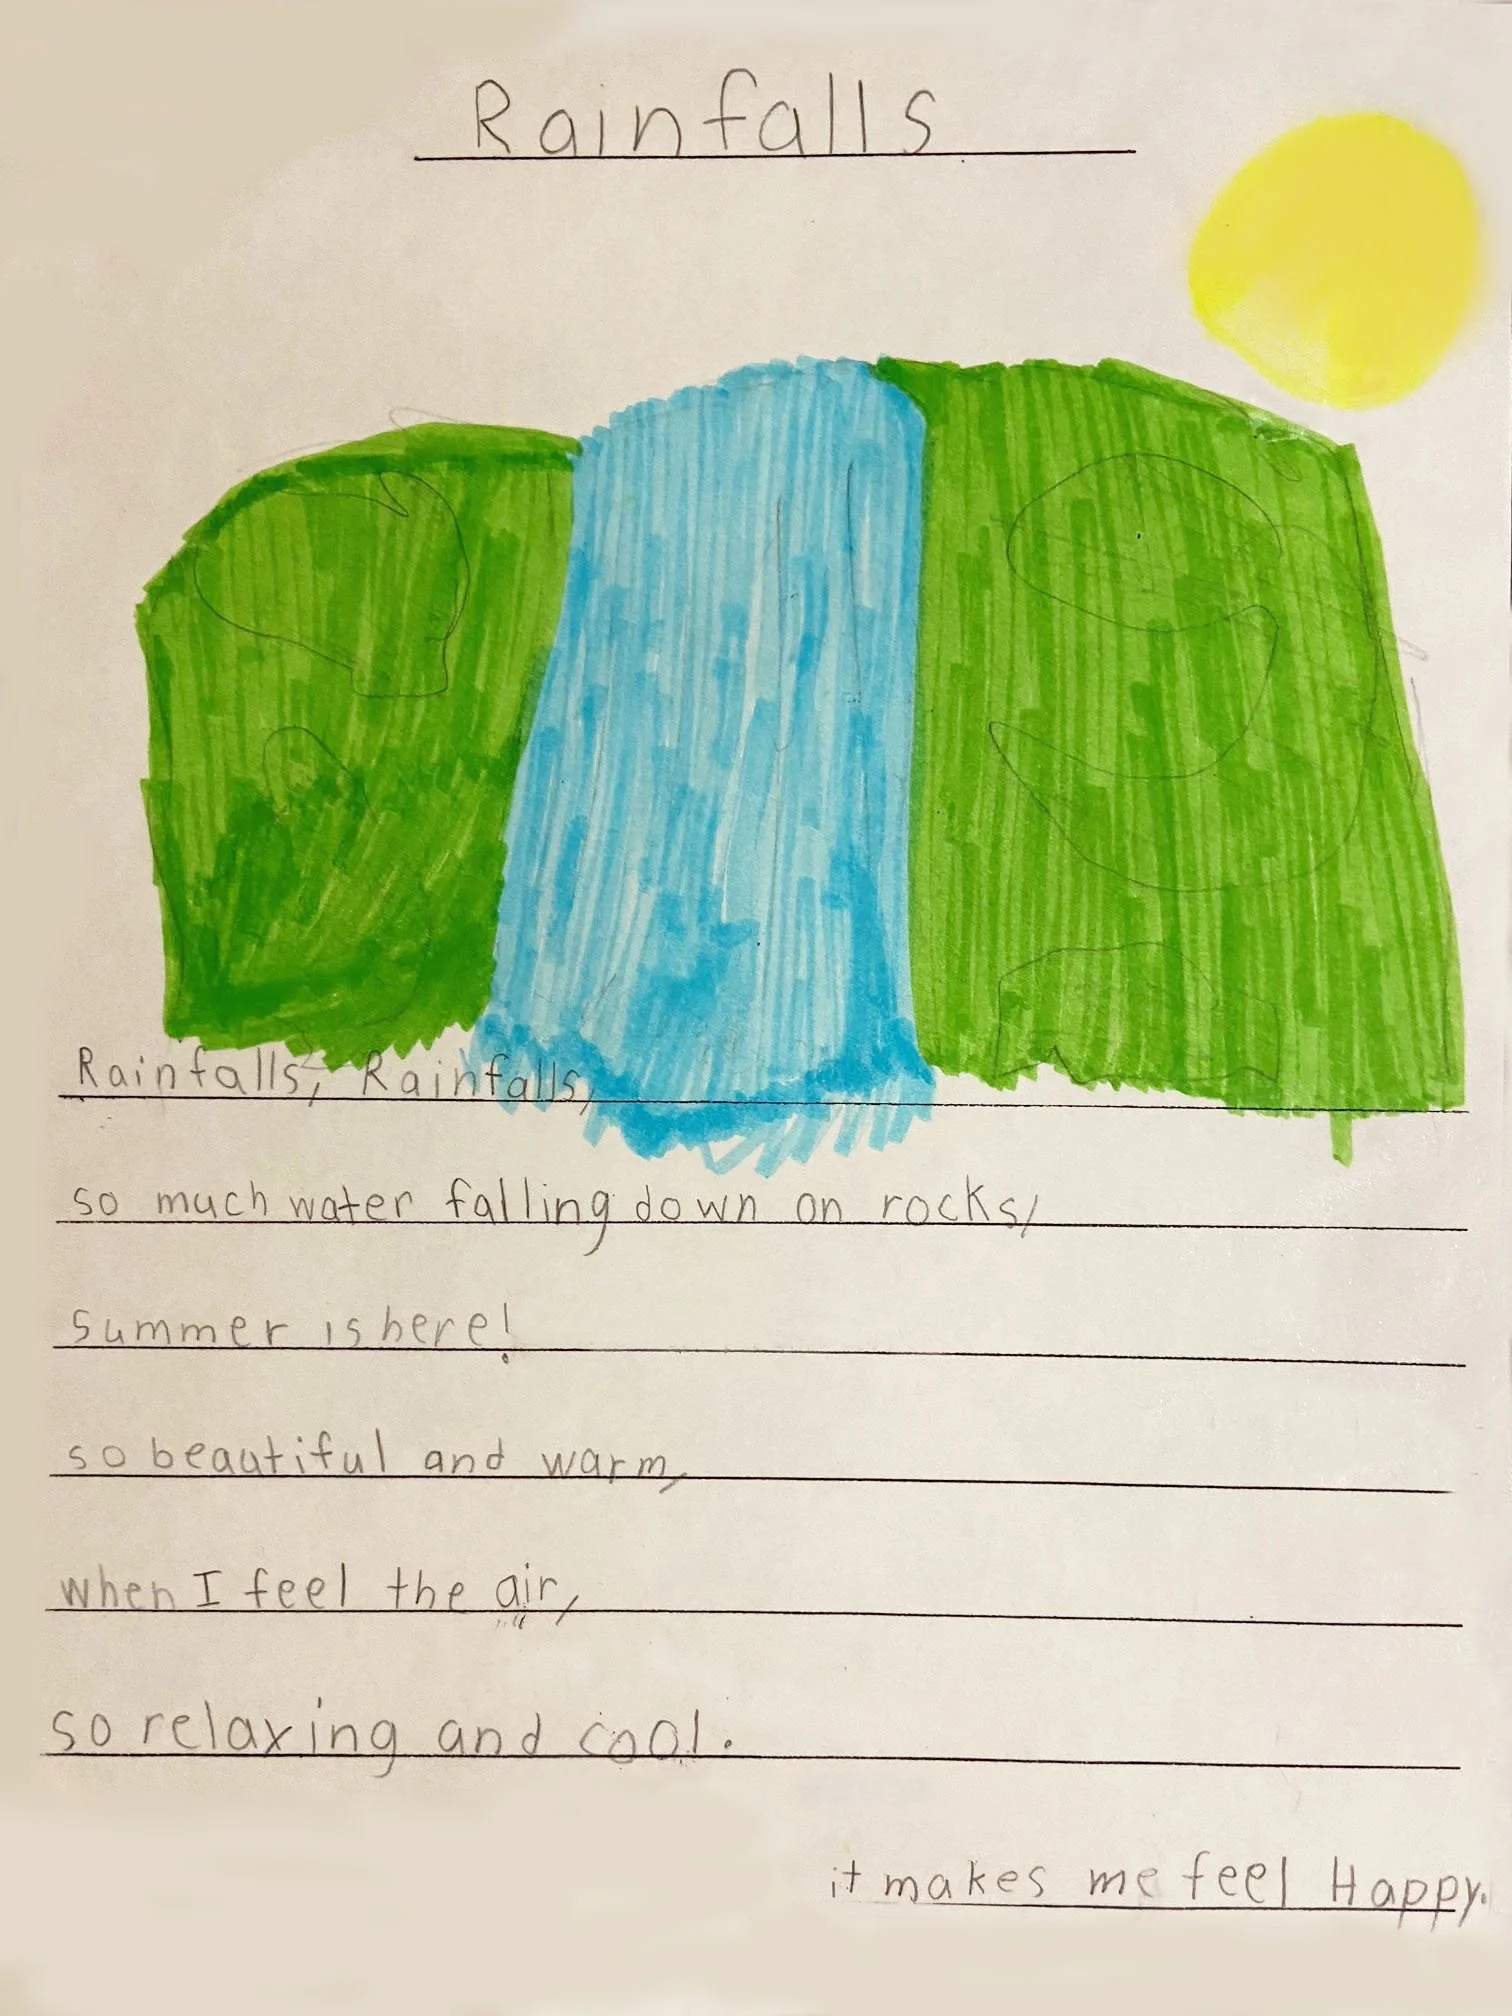 Rainfalls
Rainfalls, Rainfalls,
so much water falling down on rocks,
summer is here!
so beautiful and warm,
when I feel the air,
so relaxing and cool.
it makes me feel Happy.